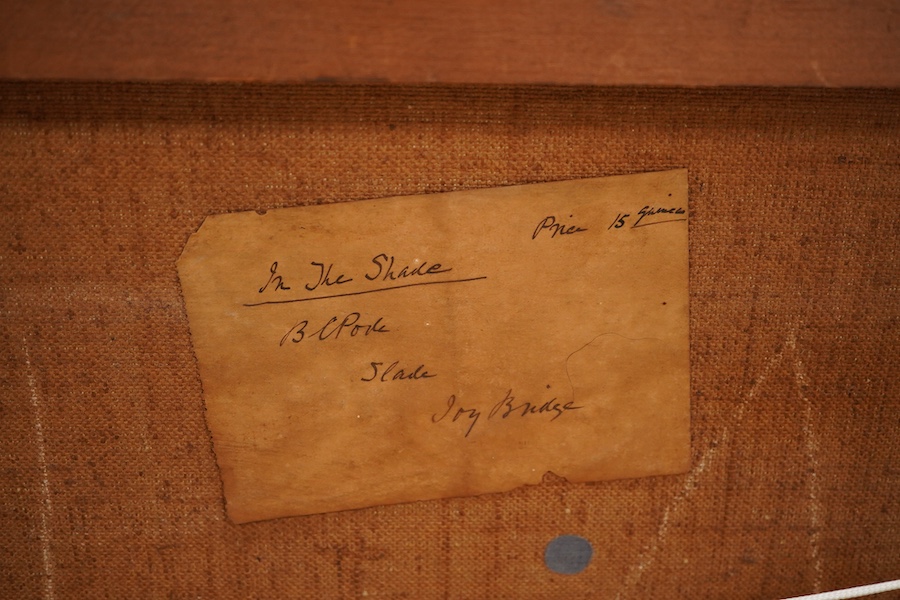 Price 15 Guineas
In The Shade
B C Pode
Slade
Ivy Bridge